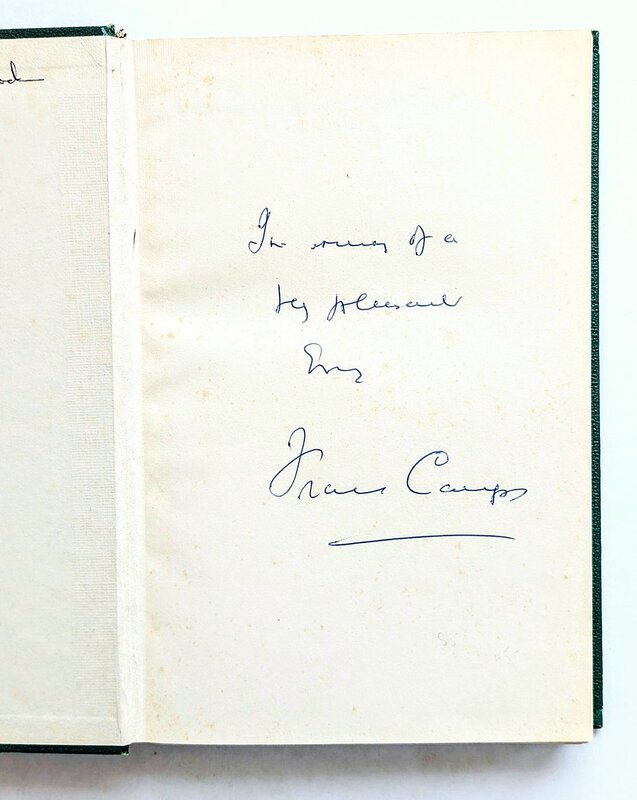 In memory of a
very pleasant
Evening
Francis Camps